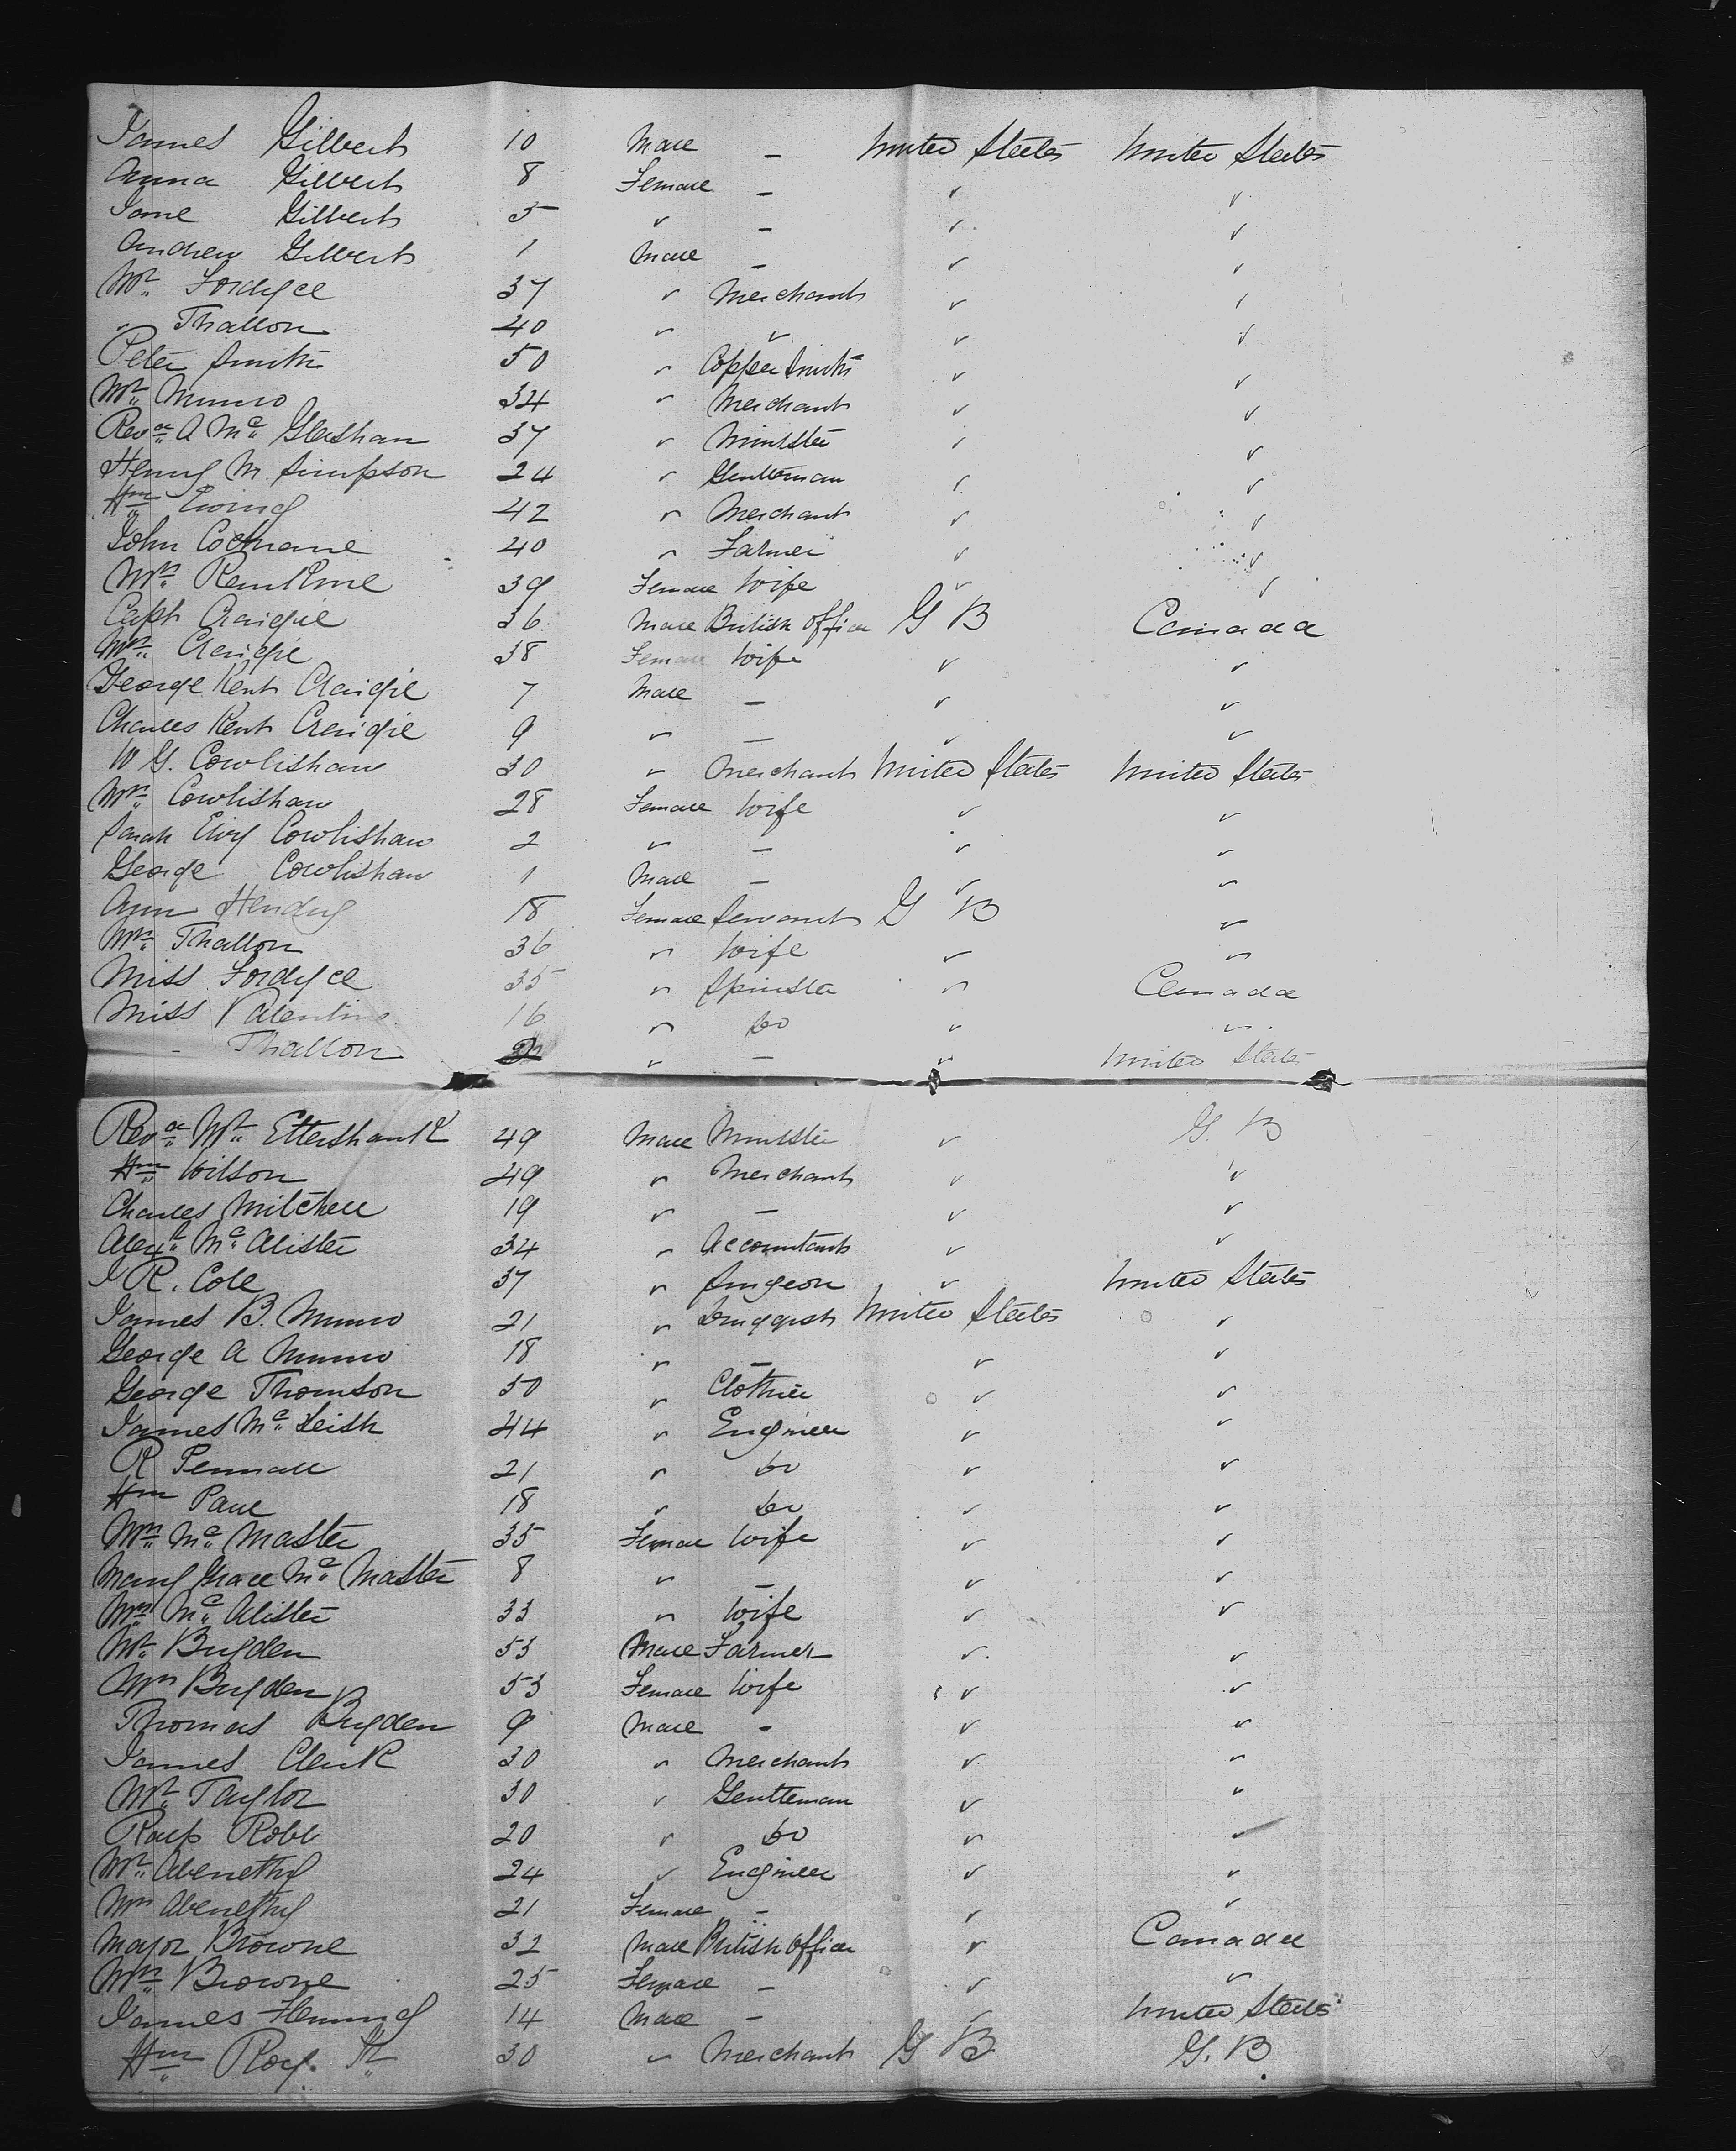 James Gilbert 10 Male - United States United States
Anna Gilbert 8 Female - " "
Jane Gilbert 5 " - " "
Andrew Gilbert 1 Male - " "
Mr. Fordyce 37 " Merchant " "
" Thallon 40 " " " "
Peter Smith 50 " Coppersmith " "
Mr. Munro 34 " Merchant " "
Revd. A Mc. Glashan 37 " Minister " "
Henry M. Simpson 24 " Gentleman " "
Wm. Ewing 42 " Merchant " "
John Cochrane 40 " Farmer " "
Mrs. Rankine 39 Female Wife " "
Capt Craigie 36 Male British Officer G B Canada
Mrs. Craigie 38 Female Wife " "
George Kent Craigie 7 Male - " "
Charles Kent Craigie 9 " - " "
W G. Cowlishaw 30 " Merchant United States United States
Mrs. Cowlishaw 28 Female Wife " "
Sarah Cowlishaw 2 " - " "
George Cowlishaw 1 Male - " "
Ann Hendry 18 Female Servant G B "
Mrs. Thallon 36 " Wife " "
Miss Fordyce 35 " Spinster " Canada
Miss Valentine 16 " Do " "
- Thallon " - " United States
Revd. Mr. Ettershank 49 Male Minister " G. B
Wm. Wilson 49 " Merchant " "
Charles Mitchell 19 " - " "
Alexr. Mc. Alister 34 " Accountant " "
J R. Cole 37 " Surgeon " United States
James B. Munro 21 " Druggist United States "
George A Munro 18 " - " "
George Thomson 50 " Clothier " "
James Mc. Leish 44 " Engineer " "
R Pennall 21 " Do " "
Wm Paul 18 " Do " "
Mrs. Mc. Master 35 Female Wife " "
Mary Grace Mc. Master 8 " - " "
Mrs. Mc. Alister 33 " Wife " "
Mr. Bugden 53 Male Farmer " "
Mrs Bugden 53 Female Wife " "
Thomas Bugden 9 Male - " "
James Clark 30 " Merchant " "
Mr. Taylor 30 " Gentleman " "
Ralp Robb 20 " Do " "
Mr. Abenethy 24 " Engineer " "
Mrs Abenethy 21 Female - " "
Major Browne 32 Male British Officer " Canada
Mrs. Browne 25 Female - " "
James Fleming 14 Male - " United States
Wm. Roy. Sr. 30 " Merchant G B G. B